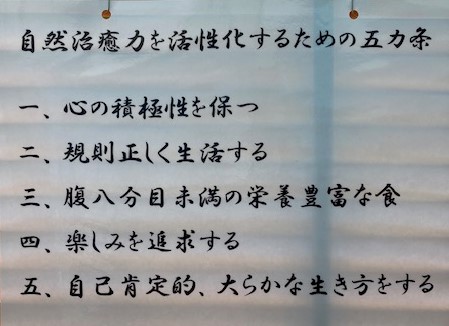 自然治癒力を活性化するための五カ条
一、心の積極性を保つ
二、規則正しく生活する
三、腹八分目未満の栄養豊富な食
四、楽しみを追求する
五、自己肯定的、大らかな生き方をする